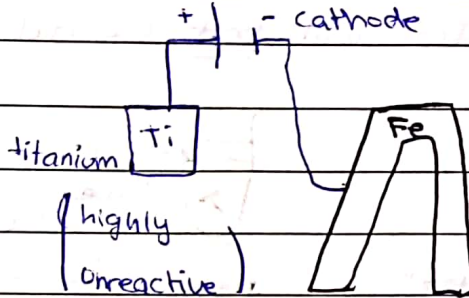 + - cathode
Ti
Fe
titanium
(highly
unreactive).